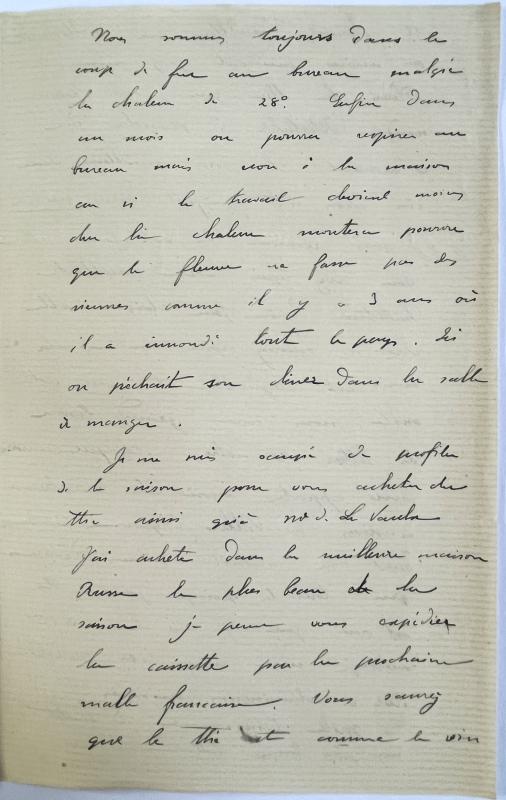 Nous sommes toujours dans le
coup de feu au bureau malgré
la chaleur de 28°. Enfin dans
un mois on pourra respirer au
bureau mais non à la maison
car si le travail devient moins
dur la chaleur montera pourvu
que le fleuve ne fasse pas des
siennes comme il y a 3 ans où
il a inondé tout le pays. Ici
on pêchait son diner dans la salle
à manger.
Je me suis occupé de profiter
de la saison pour vous acheter du
thé ainsi qu'à
J'ai acheté dans la meilleure maison
Russe le plus beau de la
saison je pense vous expédier
la caissette par la prochaine
malle française. Vous savez
que le thé est comme le vin